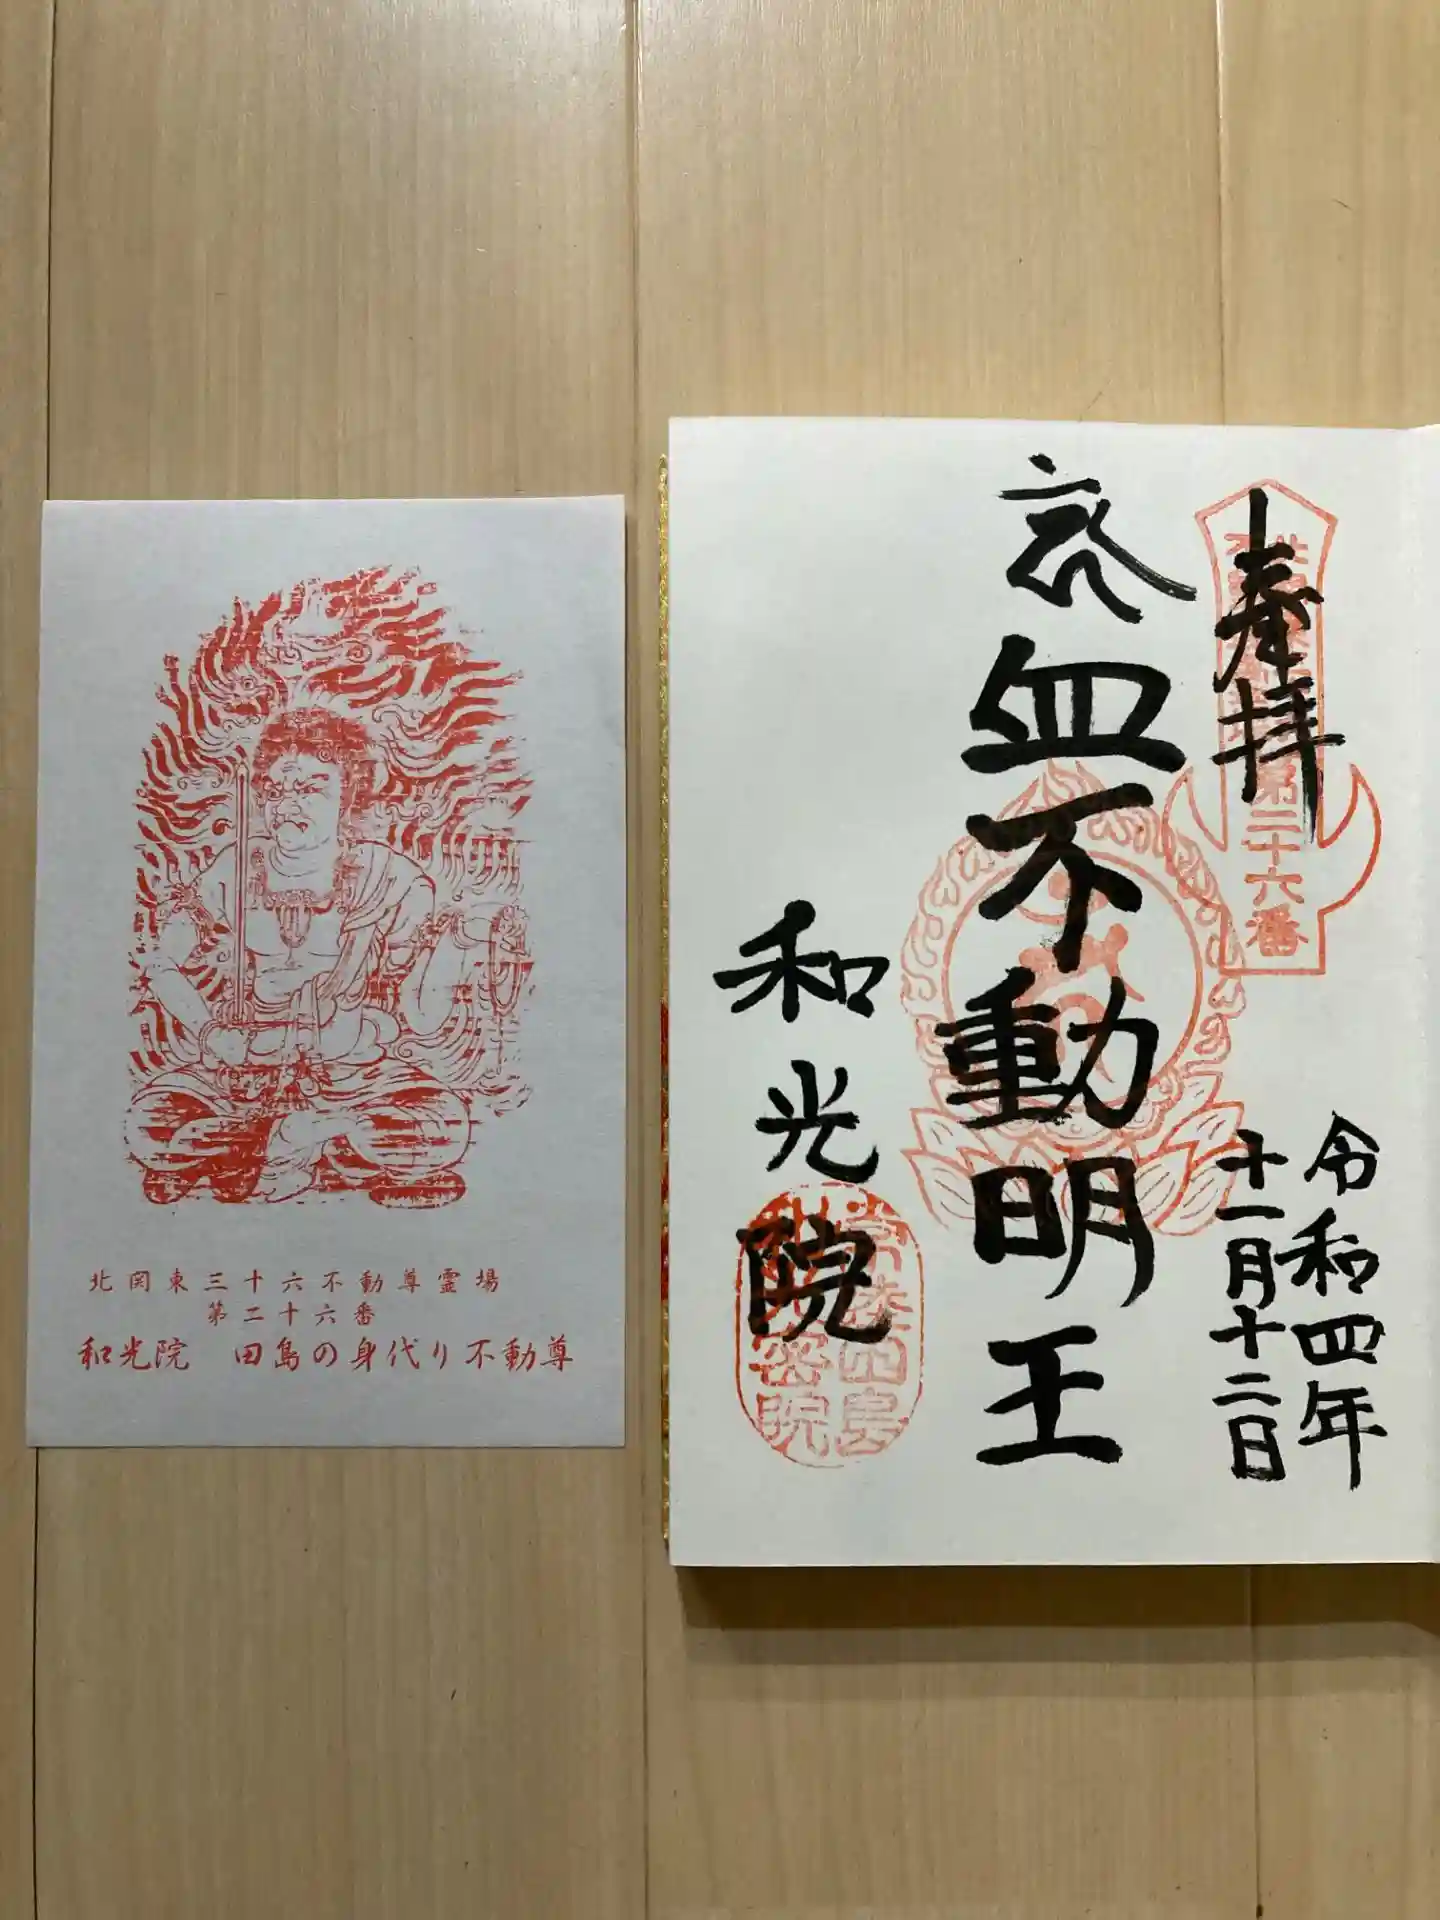 北関東三十六不動尊霊場
第二十六番
和光院 田島の身代り不動尊
奉拝
第二十六番
令和四年
十一月十二日
血不動明王
和光院